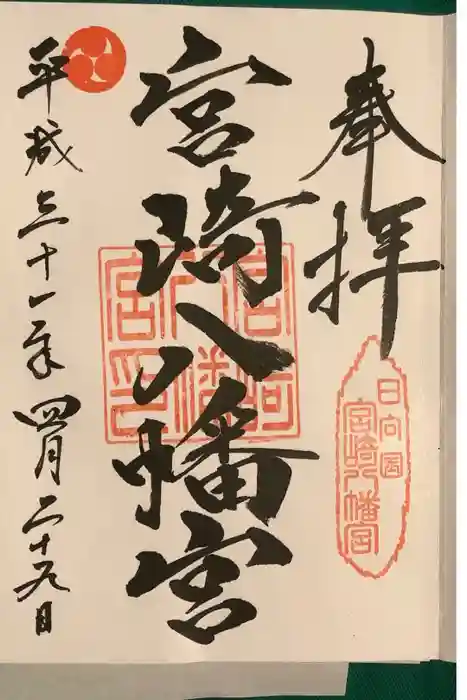 奉拝
日向國
宮崎八幡宮
宮崎八幡宮
宮崎八幡宮印
平成三十一年四月二十九日